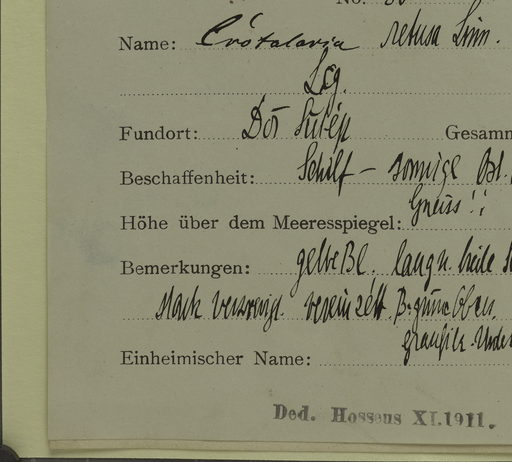 No.
Name: Crotalaria retusa Linn.
Leg.
Fundort: Doi Sutép Gesamm
Beschaffenheit: Schilf – sonnige
Gneiss!!
Höhe über dem Meeresspiegel:
Bemerkungen: gelbe Bl.
stark verzweigt. vereinzelt. B. grüne Oben.
Einheimischer Name:
Ded. Hosseus XI.1911.